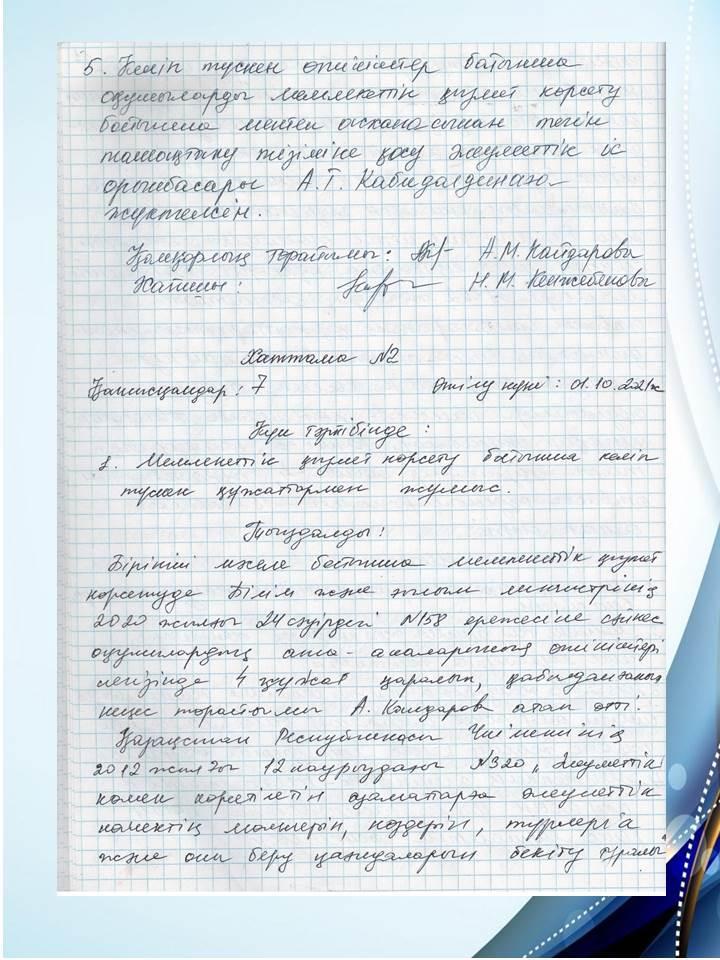 5. Келіп түскен өтініштер бойынша
оқушыларды мемлекеттік қызмет көрсету
бойынша мектеп асханасынан тегін
тамақтану тізіміне қосу әлеуметтік іс
орынбасары А.Т. Кабидалдинаға
жүктелсін.
Қамқорлық төрайымы: А.М. Кайдарова
Хатшы: Н.М. Кенжебекова
Хаттама №2
Қатысқандар: 7 Өтілу күні: 01.10.2021ж
Күн тәртібінде:
1. Мемлекеттік қызмет көрсету бойынша келіп
түскен құжаттармен жұмыс.
Тыңдалды:
Бірінші мәселе бойынша мемлекеттік қызмет
көрсетуде Білім және ғылым министрінің
2020 жылғы 24 сәуірдегі №158 ережесіне сәйкес
оқушылардың ата-аналарының өтініштері
негізінде 4 құжат қаралып, қабылданғанын
кеңес төрайымы А. Кайдарова атап өтті.
Қазақстан Республикасы Үкіметінің
2012 жылғы 12 наурыздағы №320 „Әлеуметтік
көмек көрсетілетін азаматтарға әлеуметтік
көмектің мөлшерін, көздерін, түрлерін
және оны беру қағидаларын бекіту туралы"